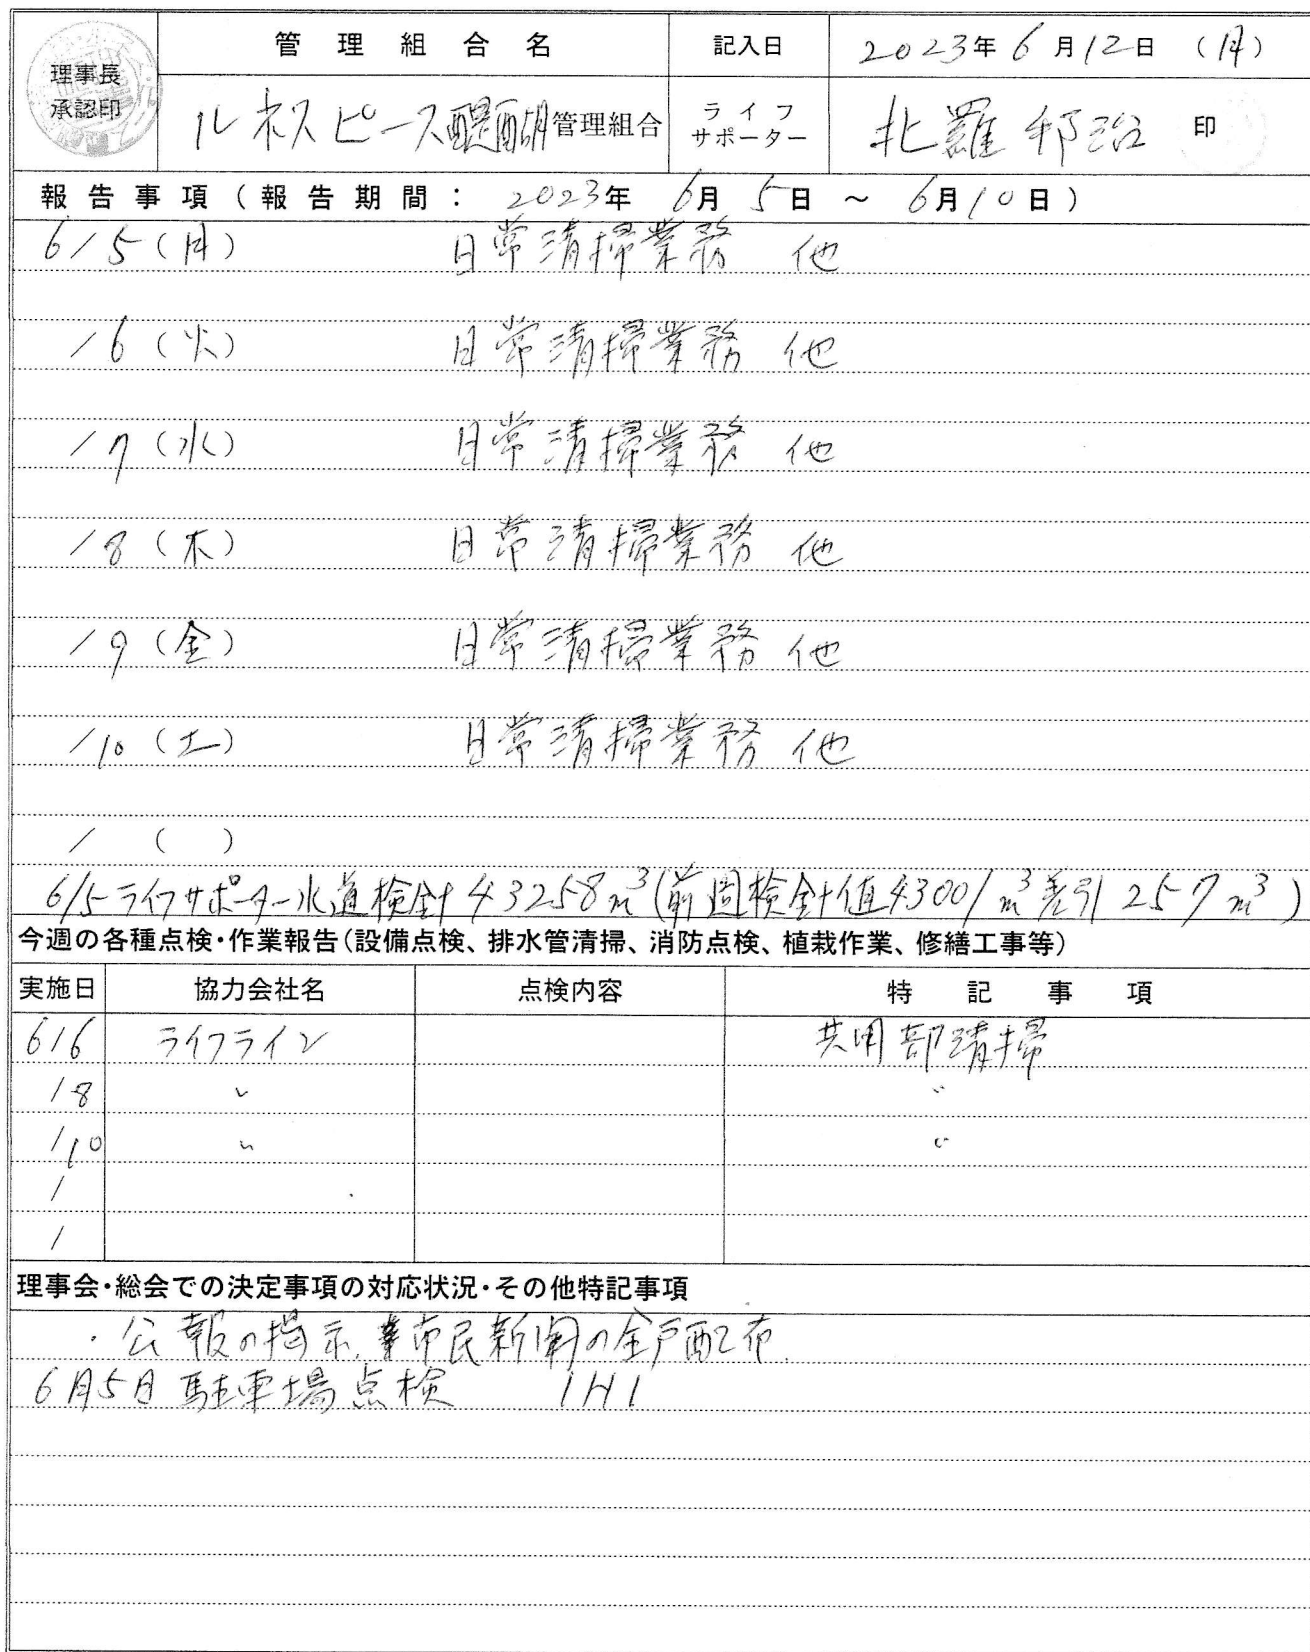 理事長
承認印
管理組合名
記入日
2023年6月12日（月）
ルネスピース醍醐管理組合
ライフ
サポーター
北羅 邦治 印
報告事項（報告期間：2023年 6月 5日 ～ 6月10日）
6/5（月） 日常清掃業務 他
/6（火） 日常清掃業務 他
/7（水） 日常清掃業務 他
/8（木） 日常清掃業務 他
/9（金） 日常清掃業務 他
/10（土） 日常清掃業務 他
/ （ ）
6/5 ライフサポーター水道検針 43258m³（前週検針値43001m³差引257m³）
今週の各種点検・作業報告（設備点検、排水管清掃、消防点検、植栽作業、修繕工事等）
実施日 協力会社名 点検内容 特記事項
6/6 ライフライン 共用部清掃
/8 〃 〃
/10 〃 〃
/
/
理事会・総会での決定事項の対応状況・その他特記事項
・公報の掲示、市民新聞の全戸配布
6月5日 駐車場点検 IHI